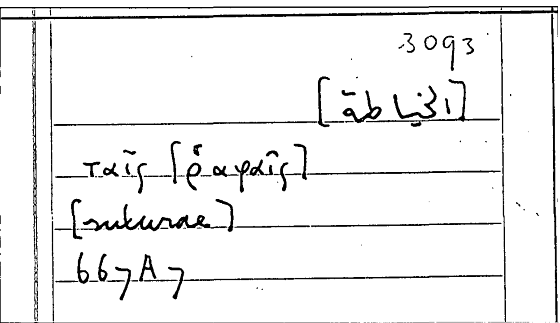 3093
ταῖς [ῥαφαῖς]
[suturae]
667A7